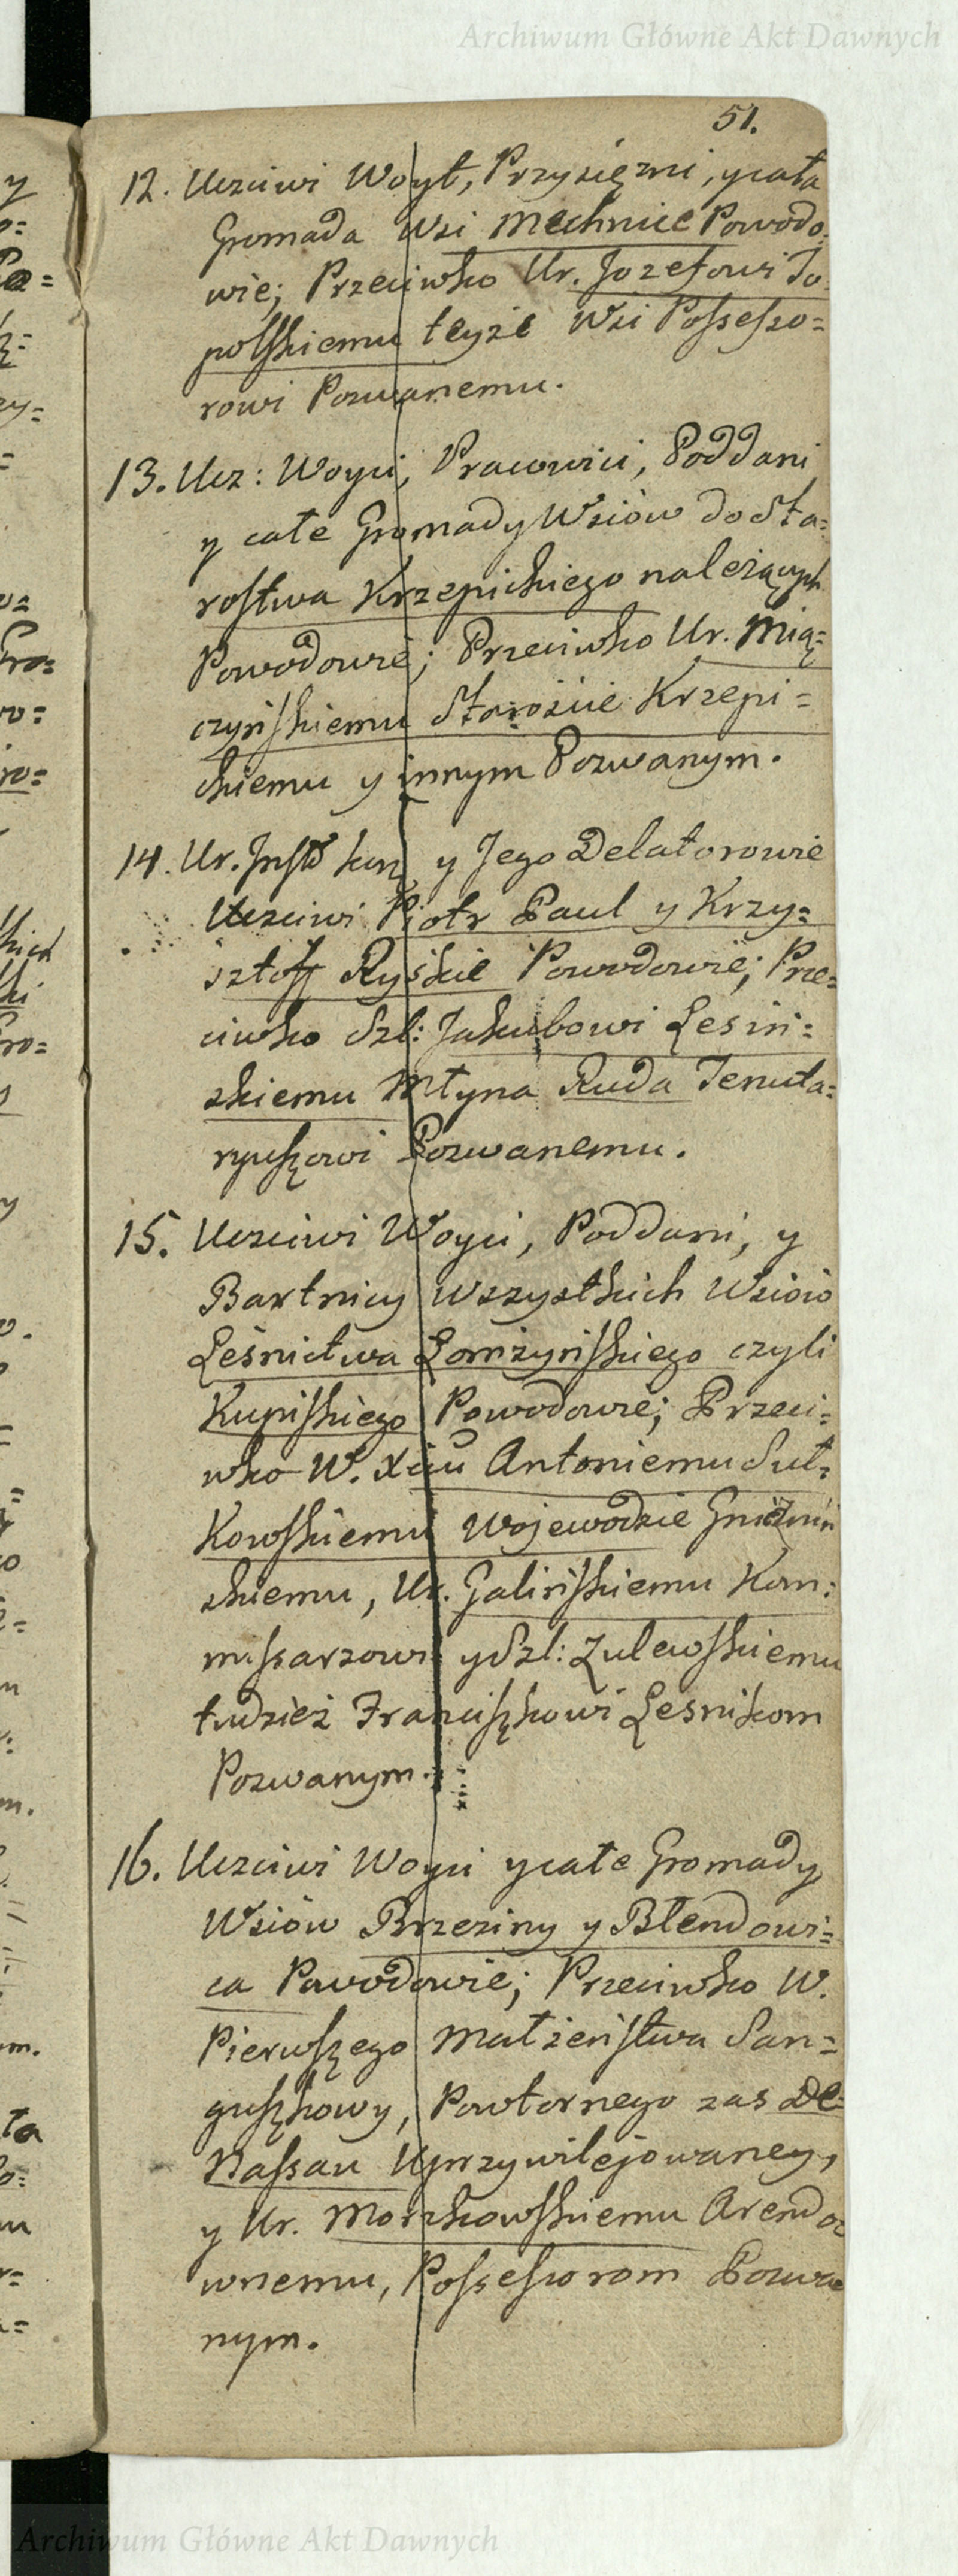 Archiwum Główne Akt Dawnych
51.
12. Uczciwi Woyt, Przysięzni, y cała
Gromada Wsi Mechnice Powodo=
wie; Przeciwko Ur. Jozefowi To=
polskiemu teyże Wsi Possesso=
rowi Pozwanemu.
13. Ucz: Woyci, Pracowici, Poddani
y całe Gromady Wsiów do Sta=
rostwa Krzepickiego należących
Powodowie; Przeciwko Ur. Mią=
czyńskiemu Staroście Krzepi=
ckiemu y innym Pozwanym.
14. Ur. y Jego Delatorowie
Uczciwi Piotr Paul y Krzy=
sztoff Ryśkie Powodowie; Prze=
ciwko Szl: Jakubowi Lesiń=
skiemu Młyna Ruda Tenuta=
ryuszowi Pozwanemu.
15. Uczciwi Woyci, Poddani, y
Bartnicy wszystkich Wsiów
Leśnictwa Łomżyńskiego czyli
Kupiskiego Powodowie; Przeci=
wko W. Xciu Antoniemu Suł=
kowskiemu Wojewodzie Gnieźniń
skiemu, Ur. Galińskiemu Kom=
missarzowi y Szl: Zulewskiemu
tudzież Franciszkowi Lesnikom
Pozwanym.
16. Uczciwi Woyci y całe Gromady
Wsiów Brzeziny y Błendowi=
ca Powodowie; Przeciwko W.
Pierwszego Małżeństwa San=
guszkowy, Powtornego zas De=
Nassau Uprzywilejowaney,
y Ur. Morzkowskiemu Arendo
wnemu, Possessorom Pozwa
nym.
Archiwum Główne Akt Dawnych